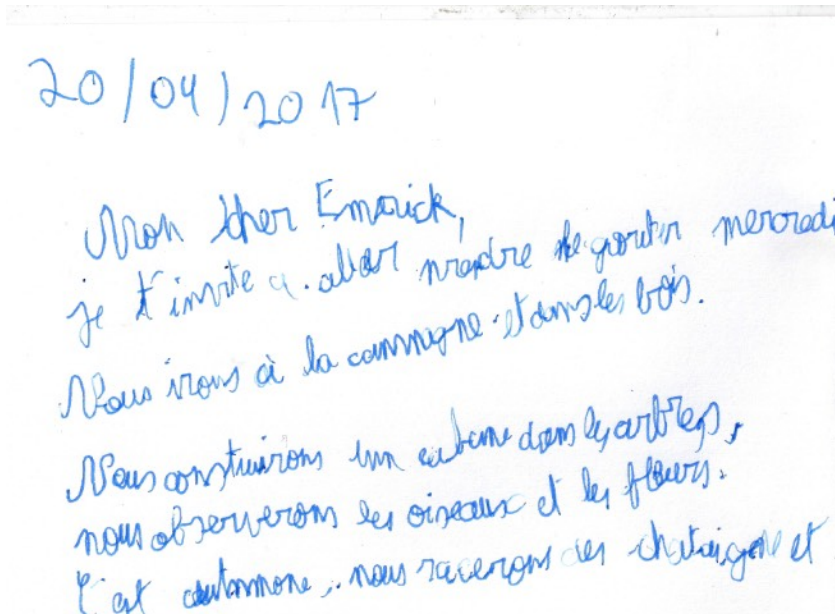 20/04/2017
Mon cher Emerick,
je t'invite a aller prendre le gouter mercredi
Nous irons à la campagne et dans les bois.
Nous construirons un cabane dans les arbres,
nous observerons les oiseaux et les fleurs.
C'est autommone, nous des chataigne et